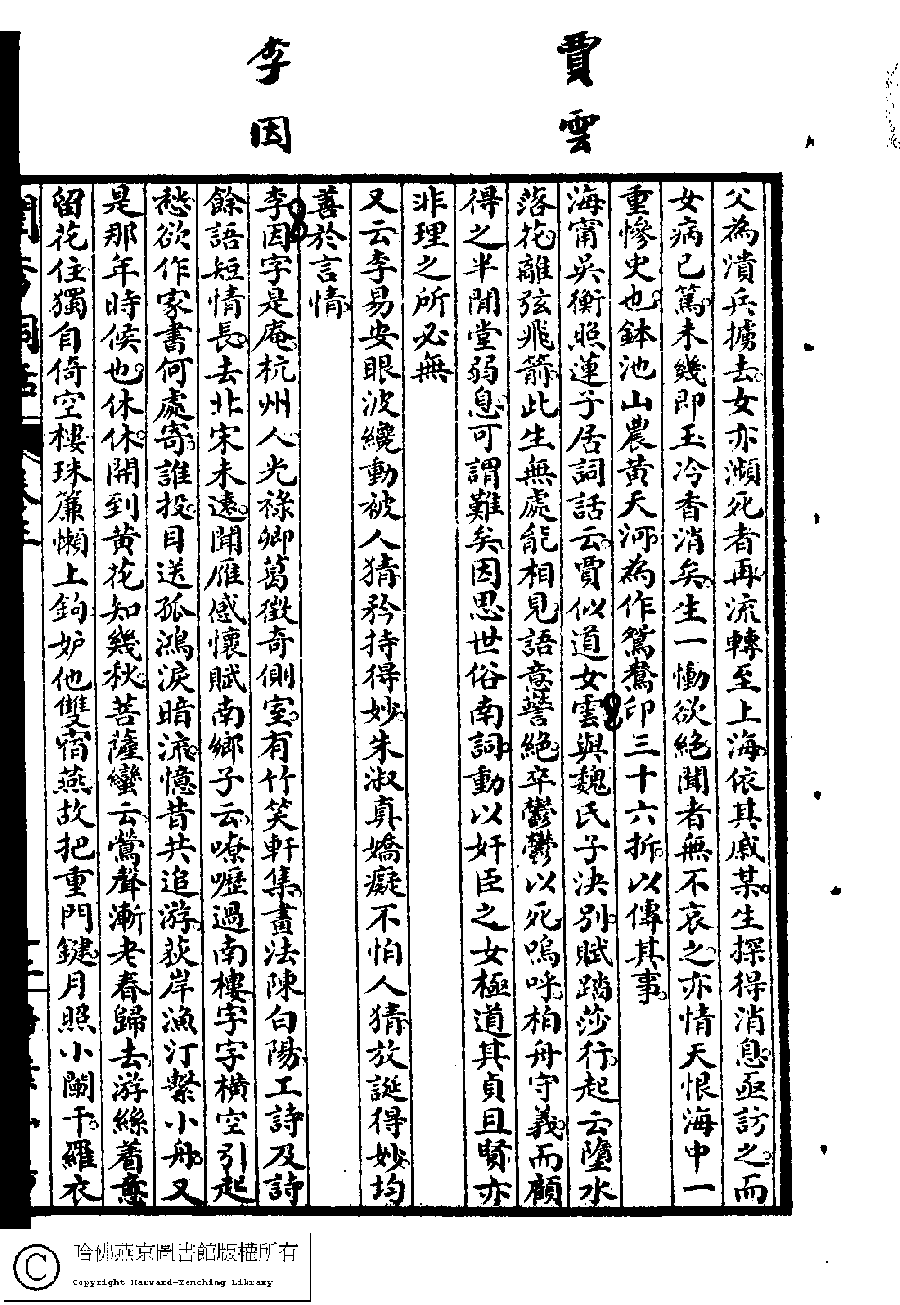 賈雲
李因
父為潰兵擄去女亦瀕死者再流轉至上海依其戚某生探得消息亟訪之而
女病已篤未幾即玉冷香消矣生一慟欲絕聞者無不哀之亦情天恨海中一
重慘史也鉢池山農黃天河為作鴛鴦印三十六折以傳其事
海甯吳衡照蓮子居詞話云賈似道女雲與魏氏子決別賦踏莎行起云墮水
落花離弦飛箭此生無處能相見語意悽絕卒鬱鬱以死嗚呼柏舟守義而顧
得之半閒堂弱息可謂難矣因思世俗南詞動以奸臣之女極道其貞且賢亦
非理之所必無
又云李易安眼波纔動被人猜矜持得妙朱淑真嬌癡不怕人猜放誕得妙均
善於言情
李因字是庵杭州人光祿卿葛徵奇側室有竹笑軒集畫法陳白陽工詩及詩
餘語短情長去北宋未遠聞雁感懷賦南鄉子云嘹嚦過南樓字字橫空引起
愁欲作家書何處寄誰投目送孤鴻淚暗流憶昔共追游荻岸漁汀繫小舟又
是那年時候也休休開到黃花知幾秋菩薩蠻云鶯聲漸老春歸去游絲着意
留花住獨自倚空樓珠簾懶上鉤妒他雙宿燕故把重門鍵月照小闌干羅衣
哈佛燕京圖書館版權所有
Copyright Harvard-Yenching Library